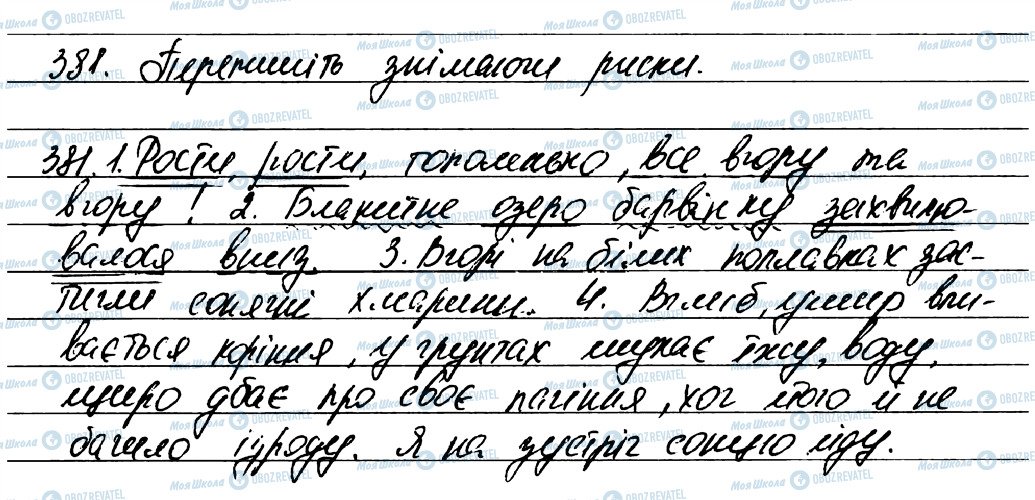 381. Перепишіть знімаючи риски.
381. 1. Рости, рости, тополенько, все вгору та
вгору! 2. Блакитне озеро барвінку захвилю-
валося вниз. 3. Вгорі на білих поплавках зас-
тигли сонячні хмарини. 4. Вглиб, ушир впи-
вається коріння, у ґрунтах шукає їжу, воду,
щиро дбає про своє пагіння, хоч його й не
бачило ізроду. Я на зустріч сонцю йду.